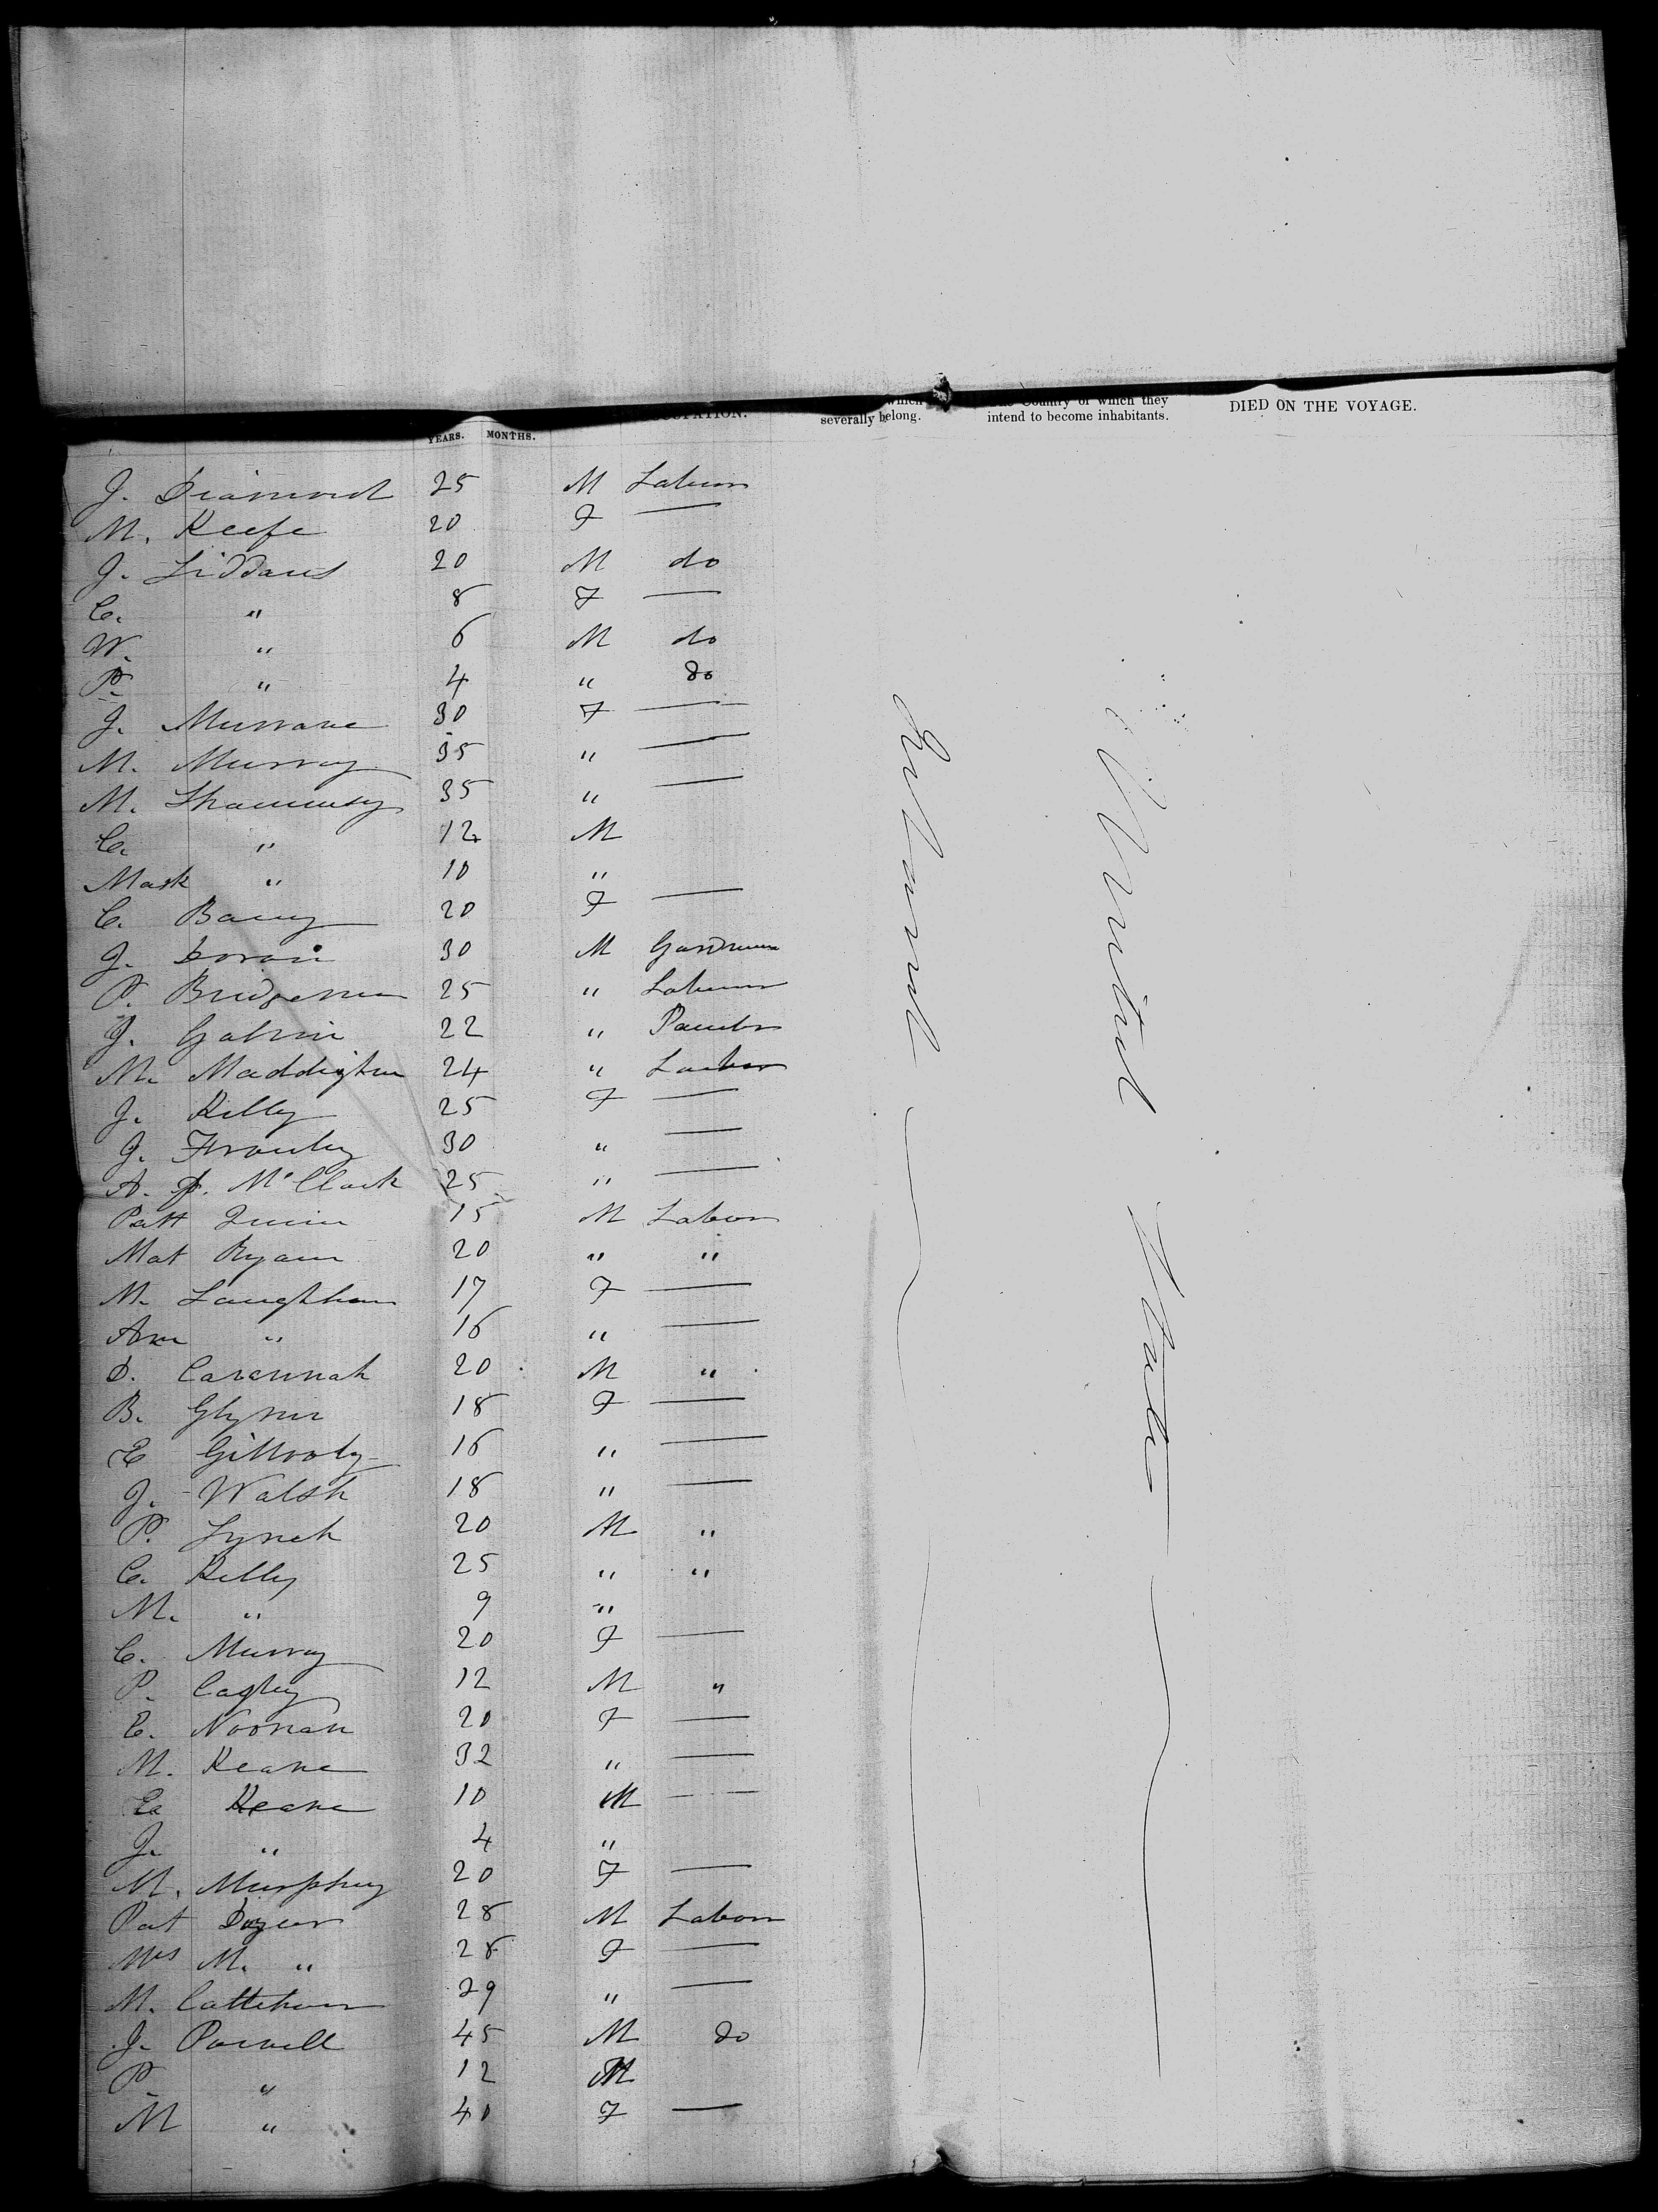 YEARS. MONTHS. OCCUPATION. which severally belong. the Country of which they intend to become inhabitants. DIED ON THE VOYAGE.
J. Diamond 25 M Labour
M. Keefe 20 F —
J. Liddans 20 M do
C. " 8 F —
W. " 6 M do
P. " 4 " do
J. Murrane 30 F —
M. Murray 35 " —
M. Shaunnesy 35 " —
C. " 12 M
Mark " 10 "
C. Barry 20 F —
J. Doran 30 M
P. Bridgeman 25 " Labour
J. Galvin 22 "
M. Maddigton 24 " Labor
J. Kelly 25 F —
J. Frawley 30 " —
A. J. McClark 25 " —
Patt Quinn 15 M Labor
Mat Ryan 20 " "
M. Laughlan 17 F —
Ann " 16 " —
D. Cavennah 20 M "
B. Glynn 18 F —
E Gillooly 16 " —
J. Walsh 18 " —
P. Lynch 20 M "
C. Kelly 25 " "
M. " 9 "
C. Murray 20 F —
P. Caghey 12 M "
E. Noonan 20 F —
M. Keane 32 " —
E. Keane 10 M —
J. " 4 "
M. Murphey 20 F —
Pat Dwyer 28 M Labor
Mrs M. " 28 F —
M. 29 " —
J. Powell 45 M do
P. " 12 M
M " 40 F —
Ireland
United States